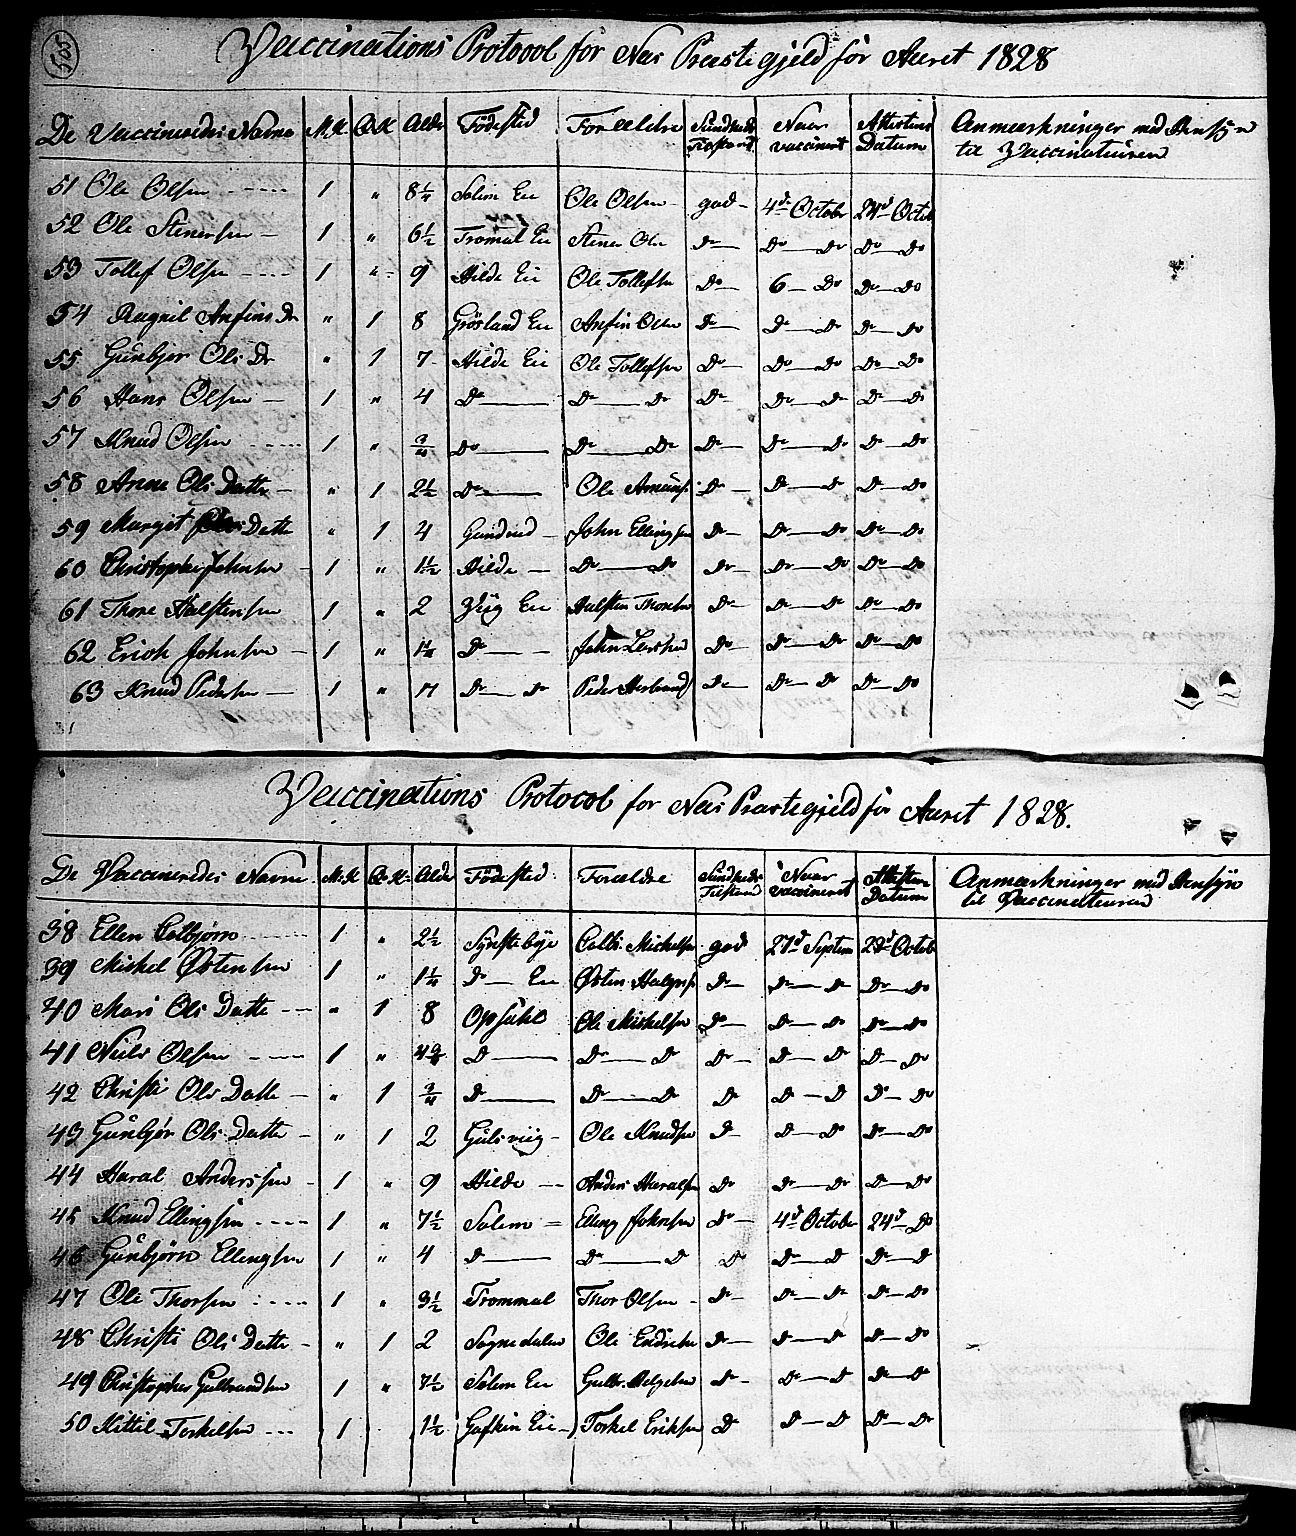 Vaccinations Protocol for Næs Præstegjeld for Aaret 1828
De Vaccineredes Navne M.K. Q.K. Alder Fødested Forældre Sundheds Tilstand Naar vaccineret Attestens Datum Anmærkninger med Hensyn til Vaccinateuren
51 Ole Olsen 1 " 8 1/4 Solem Eie Ole Olsen god 4de October 24d Octob
52 Ole Stenersen 1 " 6 1/2 Tromal Eie Stener Ole Do Do Do Do Do
53 Tollef Olsen 1 " 9 Hilde Eie Ole Tollefsen Do 6 Do Do Do
54 Ragnil Anfins Dr " 1 8 Grösland Eie Anfin Olsen Do Do Do Do Do
55 Gunbjør Ols Dr " 1 7 Hilde Eie Ole Tollefsen Do Do Do Do Do
56 Hans Olsen 1 " 4 Do Do Do Do Do Do Do Do
57 Knud Olsen 1 " 3/4 Do Do Do Do Do Do Do Do
58 Anne Ols Datter " 1 2 1/2 Do Ole Amuns. Do Do Do Do Do
59 Margit Datte " 1 4 John Ellingsen Do Do Do Do Do
60 Christopher Johnsen 1 " 1 1/2 Hilde Do Do Do Do Do Do Do
61 Thore Halstensen 1 " 2 Viig Eie Halsten Thoresen Do Do Do Do Do
62 Erich Johnsen 1 " 1 1/4 Do John Do Do Do Do Do
63 Knud Pedersen 1 " Do Do Peder Herbrand Do Do Do Do Do
Vaccinations Protocol for Næs Præstegjeld for Aaret 1828.
De Vaccineredes Navne M.K. Q.K. Alder Fødested Forældre Sundheds Tilstand Naar vaccineret Attestens Datum Anmærkninger med Hensyn til Vaccinateuren
38 Ellen Colbjørn 1 " 2 1/2 Synstebye Colb. Michelsen god 27d Septem 28d Octob
39 Mickel Østensen 1 " 1 1/4 Do Eie Østen Halgrs. Do Do Do Do Do
40 Mari Ols Datte " 1 8 Opsahl Ole Mickelsen Do Do Do Do Do
41 Niels Olsen 1 " 4 3/4 Do Do Do Do Do Do Do Do
42 Christi Ols Datte " 1 3/4 Do Do Do Do Do Do Do Do
43 Gunbjør Ols Datte " 1 2 Gulsviig Ole Knudsen Do Do Do Do Do
44 Haral Andersen 1 " 9 Hilde Anders Haralsen Do Do Do Do Do
45 Knud Ellingsen 1 " 7 1/2 Solem Elling Johnsen Do 4d October 24d Do
46 Gunbjørn Ellingsen 1 " 4 Do Do Do Do Do Do Do Do
47 Ole Thorsen 1 " 3 1/2 Trommal Thor Olsen Do Do Do Do Do
48 Christi Ols Datte " 1 2 Sognedalen Ole Endresen Do Do Do Do Do
49 Christopher Gulbrandsen 1 " 7 1/2 Solem Eie Gulbr. Helgesen Do Do Do Do Do
50 Kittil Torkelsen 1 1 1/2 Eie Torkel Eriksen Do Do Do Do Do